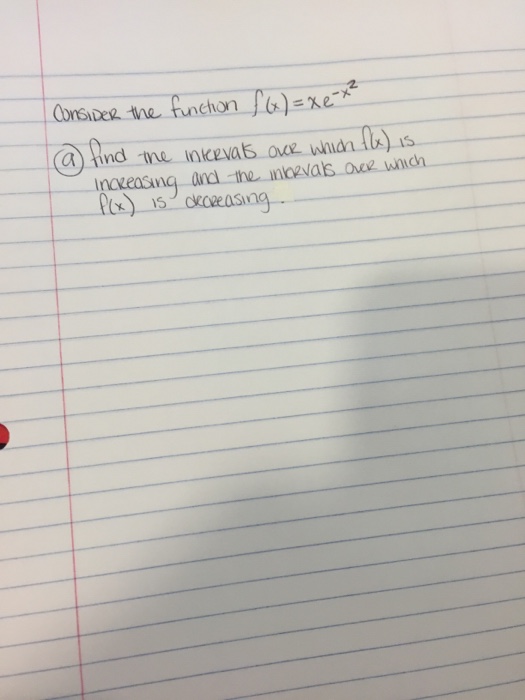 Consider the function f(x)=xe^-x²
ⓐ find the intervals over which f(x) is
increasing and the intervals over which
f(x) is decreasing.